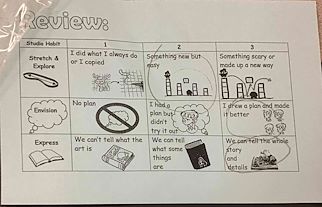 Review:
Studio Habit
1
2
3
Stretch &
Explore
I did what I always do
or I copied
Something new but
easy
Something scary or
made up a new way
Envision
No plan
I had a
plan but
didn't
try it out
I drew a plan and made
it better
Express
We can't tell what the
art is
We can tell
what some
things
are
We can tell the whole
story
and
details